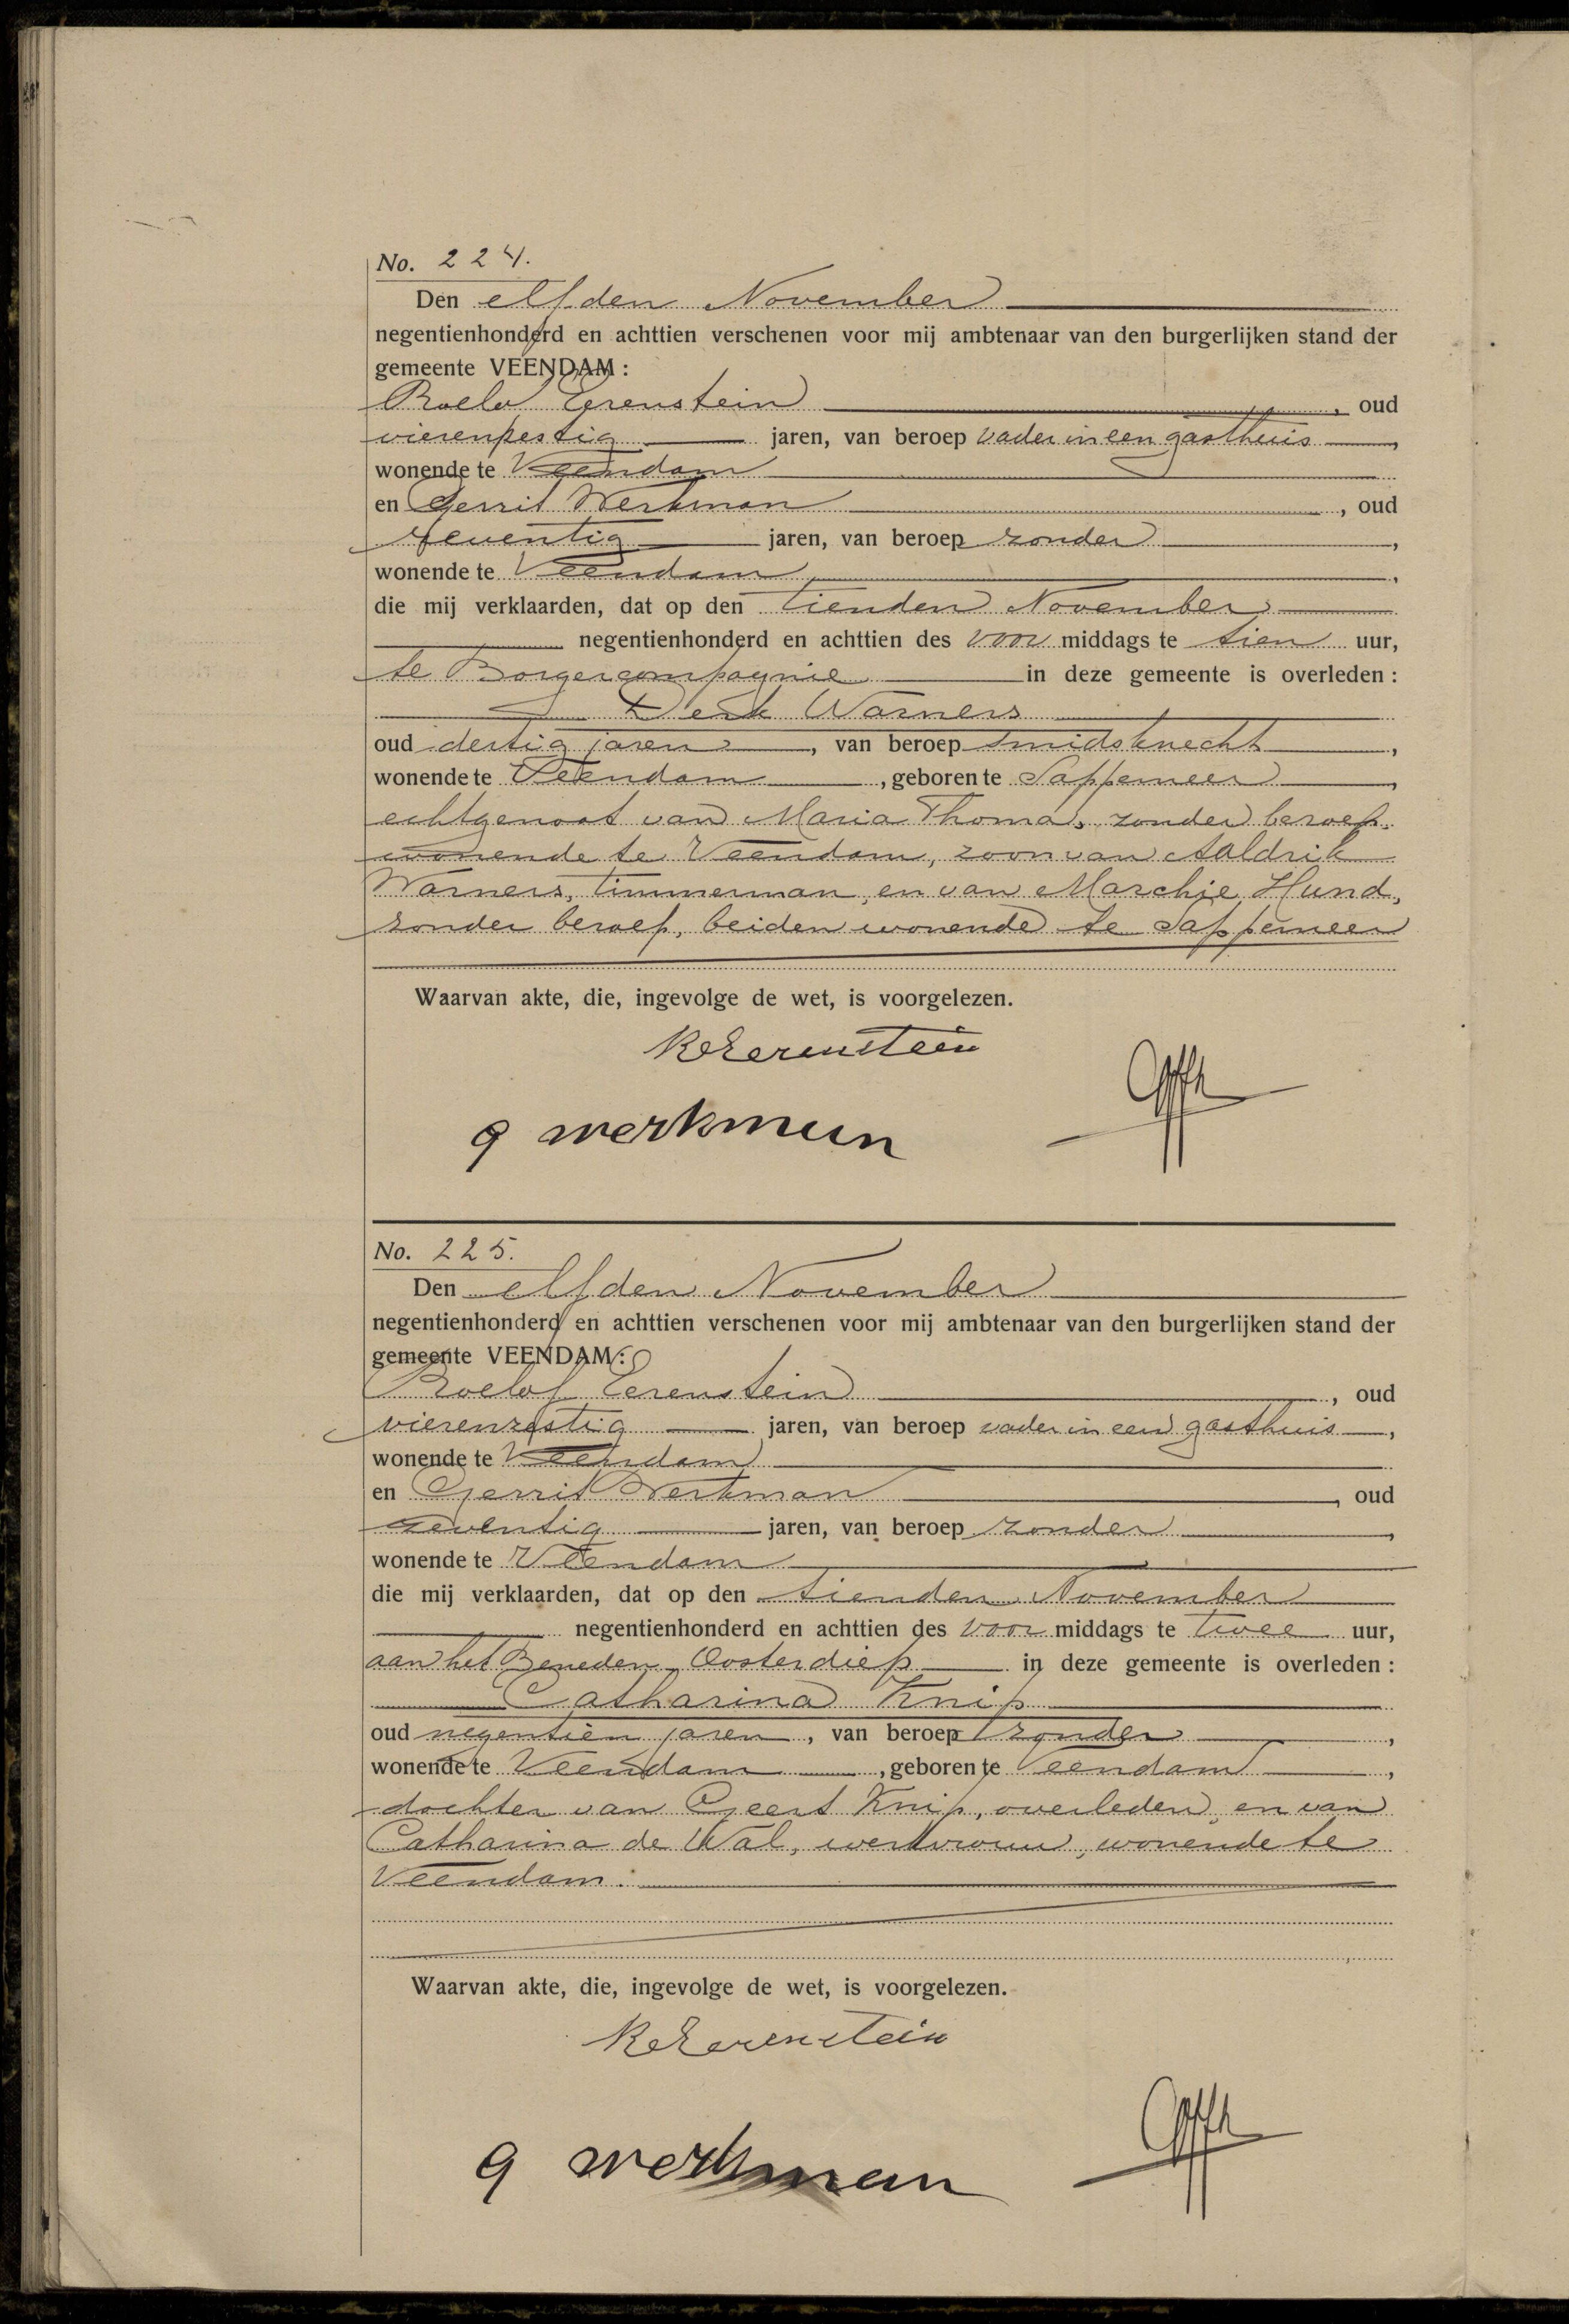 No. 224.
Den elfden November
negentienhonderd en achttien verschenen voor mij ambtenaar van den burgerlijken stand der
gemeente VEENDAM:
Roelof Eerenstein, oud
vierenzestig jaren, van beroep vader in een gasthuis,
wonende te Veendam
en Gerrit Werkman, oud
zeventig jaren, van beroep zonder,
wonende te Veendam,
die mij verklaarden, dat op den tienden November
negentienhonderd en achttien des voor middags te tien uur,
te Borgercompagnie in deze gemeente is overleden:
Derk Warners
oud dertig jaren, van beroep smidsknecht,
wonende te Veendam, geboren te Sappemeer,
echtgenoot van Maria Thoma, zonder beroep,
wonende te Veendam, zoon van Aaldrik
Warners, timmerman, en van Marchje Hund,
zonder beroep, beiden wonende te Sappemeer
Waarvan akte, die, ingevolge de wet, is voorgelezen.
R Eerenstein
g werkman
No. 225.
Den elfden November
negentienhonderd en achttien verschenen voor mij ambtenaar van den burgerlijken stand der
gemeente VEENDAM:
Roelof Eerenstein, oud
vierenzestig jaren, van beroep vader in een gasthuis,
wonende te Veendam
en Gerrit Werkman, oud
zeventig jaren, van beroep zonder,
wonende te Veendam
die mij verklaarden, dat op den tienden November
negentienhonderd en achttien des voor middags te twee uur,
aan het Beneden Oosterdiep in deze gemeente is overleden:
Catharina Knip
oud negentien jaren, van beroep zonder,
wonende te Veendam, geboren te Veendam,
dochter van Geert Knip, overleden, en van
Catharina de Wal, werkvrouw, wonende te
Veendam.
Waarvan akte, die, ingevolge de wet, is voorgelezen.
R Eerenstein
g werkman